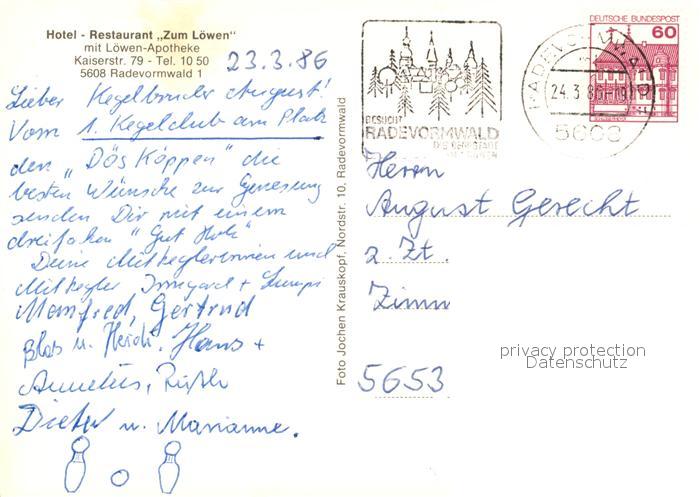 Hotel - Restaurant „Zum Löwen"
mit Löwen-Apotheke
Kaiserstr. 79 - Tel. 10 50
5608 Radevormwald 1
23.3.86
Lieber Kegelbruder August!
Vom 1. Kegelclub am Platz
den „Dös Köppen" die
besten Wünsche zur Genesung
senden Dir mit einem
dreifachen "Gut Holz"
Deine Mitkeglerinnen und
Mitkegler Irmgard +
Manfred, Gertrud
u. Heidi. Hans +
Dieter u. Marianne.
Foto Jochen Krauskopf, Nordstr. 10, Radevormwald
BESUCHT
RADEVORMWALD
RADEVORMWALD
24.3.86-19
5608
DEUTSCHE BUNDESPOST
60
Herrn
August Gerecht
z. Zt.
Zimm
5653
privacy protection
Datenschutz